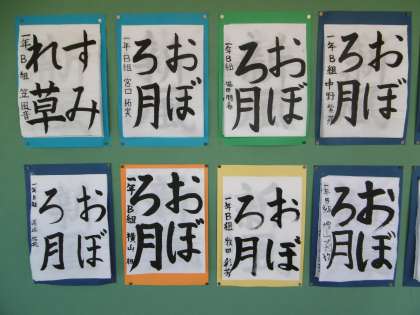 すみ
れ草
一年B組
おぼ
ろ月
一年B組 宮口拓実
おぼ
ろ月
一年B組
おぼ
ろ月
一年B組 中野
おぼ
ろ月
一年B組
おぼ
ろ月
一年B組 横山
おぼ
ろ月
一年B組 牧田彩芳
おぼ
ろ月
一年B組